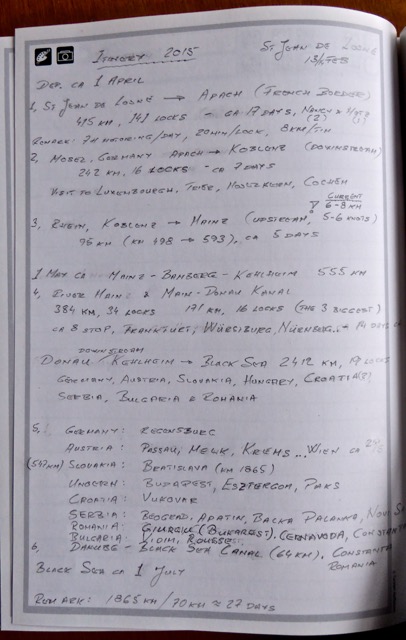 ITINERY 2015
ST JEAN DE LOSNE
13/FEB
DEP. CA 1 APRIL
1, ST JEAN DE LOSNE → APACH (FRENCH BORDER)
475 KM, 141 LOCKS - CA 17 DAYS, NANCY
(2) (1)
REMARK: 7H MOORING/DAY, 20MIN/LOCK, 8KM/TIM
2, MOSEL, GERMANY APACH → KOBLENZ (DOWNSTREAM)
242 KM, 16 LOCKS - CA 7 DAYS
VISIT TO LUXENBOURGH, TRIER, COCHEM
CURRENT
6-8 KM
3, RHEIN, KOBLENZ → MAINZ (UPSTREAM, 5-6 KNOTS)
95 KM (KM 498 → 593), CA 5 DAYS
1 MAY CA MAINZ - BAMBERG - KEHLHEIM 555 KM
4, RIVER MAINZ & MAIN-DONAU KANAL
384 KM, 34 LOCKS 171 KM, 16 LOCKS (THE 3 BIGGEST)
CA 8 STOP, FRANKFURT, WÜRSIBURG, NÜRNBERG..
DOWNSTREAM
DONAU / KEHLHEIM → BLACK SEA 2412 KM, LOCKS
GERMENY, AUSTRIA, SLOVAKIA, HUNGARY, CROATIA(?)
SERBIA, BULGARIA & ROMANIA
5, GERMANY: REGENSBURG
AUSTRIA: PASSAU, MELK, KREMS... WIEN CA
(547KM) SLOVAKIA: BRATISLAVA (KM 1865)
UNGERN: BUDAPEST, ESZTERGOM, PAKS
CROATIA: VUKOVAR
SERBIA: BEOGRAD, APATIN, BACKA PALANKA, NOVI
ROMANIA: GIURGIU (BUKAREST), CERNAVODA,
BULGARIA: VIDIN, ROUSSE
6, DANUBE - BLACK SEA CANAL (64KM), CONSTANTA
ROMANIA
BLACK SEA CA 1 JULY
REMARK: 1865 KM / 70 KM ≈ 27 DAYS